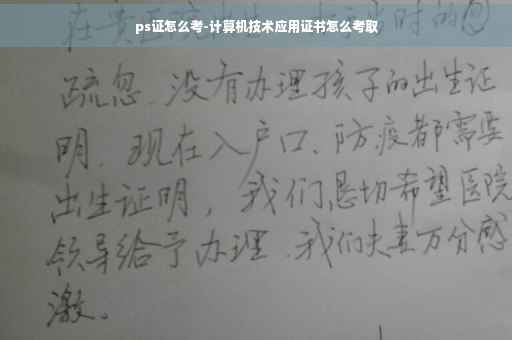 ps证怎么考-计算机技术应用证书怎么考取
在贵医院出生时的
疏忽、没有办理孩子的出生证
明。现在入户口、防疫都需要
出生证明，我们恳切希望医院
领导给予办理，我们夫妻万分感
激。